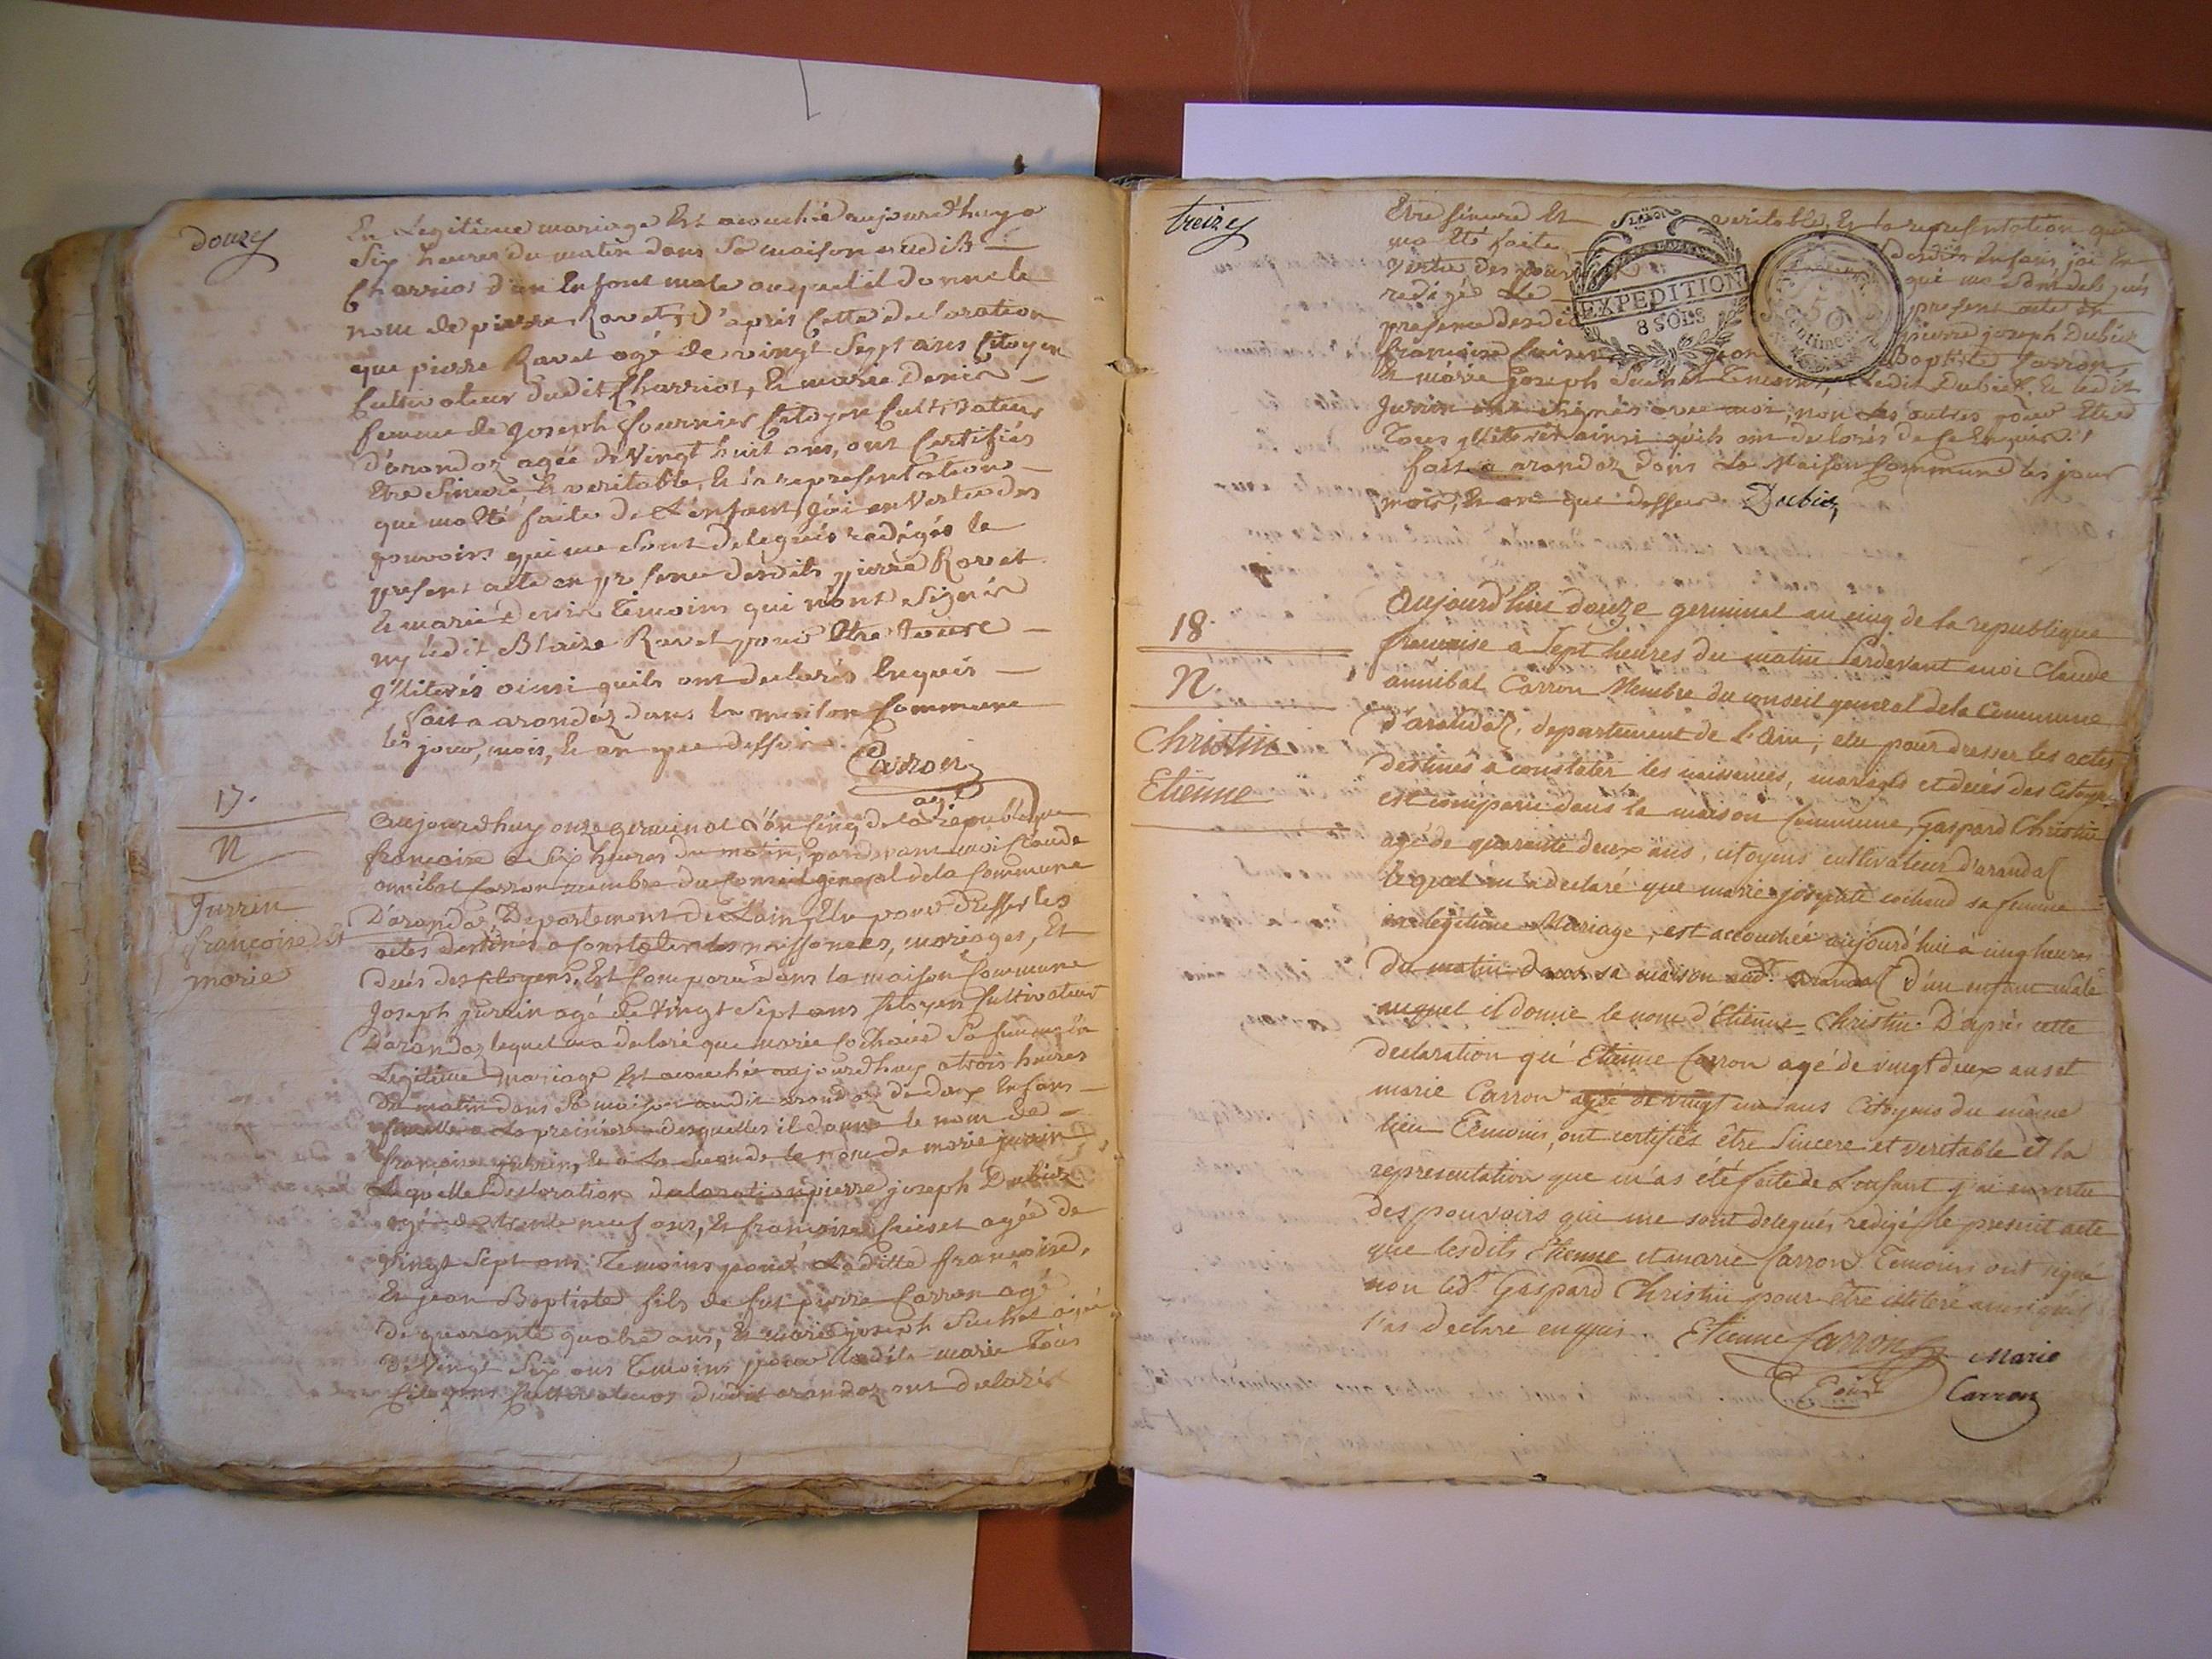 douze
En Legitime mariage Est acouchée aujourd'huy a
Six heures du matin dans Sa maison audit
Charriot d'un Enfant male auquel il donne le
nom de pierre Ravet, D'apres Cette declaration
que pierre Ravet agé de vingt Sept ans Citoyen
Cultivateur dudit Charriot, Et marie Denis
femme de Joseph fournier Citoyen Cultivateur
d'arandaz agée de Vingt huit ans, ont Certifiés
Etre Sincere, Et veritable, Et la representation
que ma Eté faite de L'enfant, J'ai en Vertu des
pouvoirs qui me Sont delegués redigés le
present acte en presence desdits pierre Ravet
Et marie denis Temoins qui n'ont Signés
ny ledit Blaise Ravet pour Etre tous
illiterés ainsi quils ont declarés Enquis
fait a arandaz dans la maison Commune
les jour, mois, Et an que dessus
Carron
agt
17.
N
Jurrin
françoise Et
marie
Aujourdhuy onze germinal L'an Cinq de la republique
françoise a Six heures du matin, pardevant moi Claude
annibal Carron membre du Conseil general de la Commune
D'arandaz Departement de L'ain Elu pour Dresser les
actes destinés a Constater les naissances, mariages, Et
decés des Citoyens, Est Comparu dans la maison Commune
Joseph jurrin agé de Vingt Sept ans Citoyen Cultivateur
D'arandaz lequel ma declaré que marie Sa femme En
Legitime mariage Est acouchée aujourdhuy a trois heures
du matin dans Sa maison audit arandaz de deux Enfans
femelle a La premiere desquelles il donne le nom de
françoise jurrin, Et a La Seconde le nom de marie jurrin
Laquelle declaration declaration pierre joseph Dubiez
agé de trente neuf ans, Et françoise agée de
Vingt Sept ans Temoins pour Laditte françoise,
Et jean Baptiste fils de fut pierre Carron agé
de quarante quatre ans, Et marie joseph agée
de Vingt Six ans Temoins pour Ladite marie Tous
Citoyens Cultivateurs dudit arandaz ont declarés
treize
Etre sincere Et veritable, Et la representation qui
ma Eté faite Desdits Enfans, jai En
vertu des pouv qui me sont delegués
redigés Le present acte En
presence desd pierre joseph Dubiez
françoise Jean Baptiste Carron
Et marie Joseph Temoins, Ledit Dubiez Et ledit
Jurrin ont Signés avec moi, non Les autres pour Etre
Tous illiterés ainsi quils ont declarés de Ce Enquis.
fait a arandaz dans La Maison Commune les jour
mois, Et an que dessus. Dubiez
18.
N.
Christin
Etienne
Aujourd'hui douze germinal an cinq de la republique
francaise a Sept heures du matin Pardevant moi Claude
annibal Carron Membre du conseil general de la Commune
d'arandaz, departement de l'Ain; elu pour dresser les actes
destinés a constater les naissances, mariages et décés des Citoyens
est comparu dans la maison Commune, Gaspard Christin
agé de quarante deux ans, citoyens cultivateur d'arandaz
lequel m'a declaré que marie josephte cochaud sa femme
in legitime Mariage, est accouchée aujourd'hui a cinq heures
du matin dans sa maison aud.t arandaz d'un enfant male
auquel il donne le nom d'Etienne Christin. D'après cette
declaration qu' Etienne Carron agé de vingt deux ans et
marie Carron agée de vingt un ans Citoyens du même
lieu Temoins, ont certifiés être Sincere et veritable et la
representation que m'as été faite de L'enfant j'ai en vertu
des pouvoirs qui me sont delegués redigé le present acte
que lesdits Etienne et marie Carron Temoins ont signé
non led.t Gaspard Christin pour être illiteré ainsi qu'il
l'as declare enquis. Etienne Carron
Marie
Carron
EXPEDITION
8 SOLS
50
Centimes